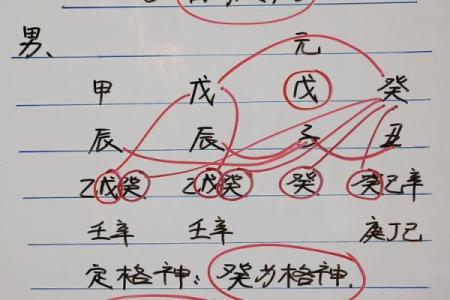 男、
元
甲 戊 戊 癸
辰 辰 子 丑
乙戊癸 乙戊癸 癸 癸己辛
壬辛 壬辛 庚丁己
定格神: 癸为格神.